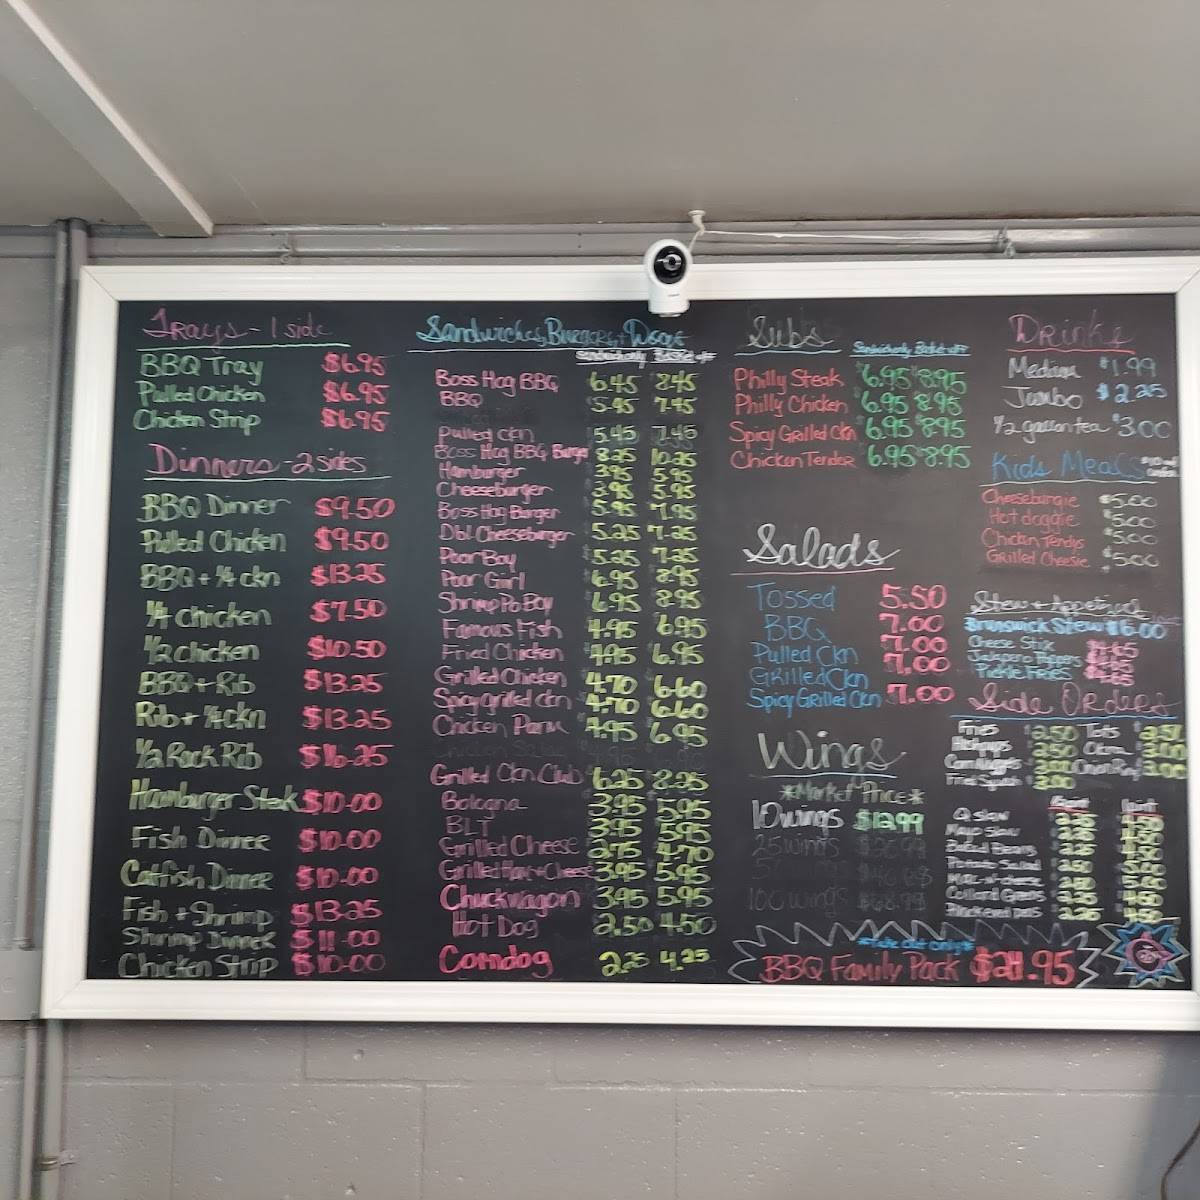 Trays - 1 side
BBQ Tray $6.95
Pulled Chicken $6.95
Chicken Strip $6.95
Dinners - 2 sides
BBQ Dinner $9.50
Pulled Chicken $9.50
BBQ + 1/4 ckn $13.25
1/4 chicken $7.50
1/2 chicken $10.50
BBQ + Rib $13.25
Rib + 1/4 ckn $13.25
1/2 Rack Rib $16.25
Hamburger Steak $10.00
Fish Dinner $10.00
Catfish Dinner $10.00
Fish + Shrimp $13.25
Shrimp Dinner $11.00
Chicken Strip $10.00
Sandwiches, Burgers, + Dogs
Sandwich only Basket w/ff
Boss Hog BBQ 6.45 8.45
BBQ 5.45 7.45
Pulled ckn 5.45 7.45
Boss Hog BBQ Burger 8.25 10.25
Hamburger 3.95 5.95
Cheeseburger 3.95 5.95
Boss Hog Burger 5.95 7.95
Dbl. Cheeseburger 5.25 7.25
Poor Boy 5.25 7.25
Poor Girl 6.95 8.95
Shrimp Po Boy 6.95 8.95
Famous Fish 4.95 6.95
Fried Chicken 4.95 6.95
Grilled Chicken 4.70 6.60
Spicy grilled ckn 4.70 6.60
Chicken Parm 4.95 6.95
Grilled Ckn Club 6.25 8.25
Bologna 3.95 5.95
BLT 3.95 5.95
Grilled Cheese 2.75 4.70
Grilled Ham + Cheese 3.95 5.95
Chuckwagon 3.95 5.95
Hot Dog 2.50 4.50
Corndog 2.25 4.25
Subs
Sandwich only Basket w/ff
Philly Steak 6.95 8.95
Philly Chicken 6.95 8.95
Spicy Grilled Ckn 6.95 8.95
Chicken Tender 6.95 8.95
Salads
Tossed 5.50
BBQ 7.00
Pulled Ckn 7.00
Grilled Ckn 7.00
Spicy Grilled Ckn 7.00
Wings
*Market Price*
10 wings $12.99
25 wings
100 wings $68.99
*Take Out Only*
BBQ Family Pack
Drinks
Medium $1.99
Jumbo $2.25
1/2 gallon tea $3.00
Kids Meals
Cheeseburgie $5.00
Hot doggie $5.00
Chicken Tendys $5.00
Grilled Cheesie $5.00
Stew + Appetizers
Brunswick Stew $6.00
Cheese Stik
Jalapeno Poppers
Pickle Fries
Side Orders
Fries 2.50 Tots
2.50 Okra 3.00
Corn Nuggets 3.00 Onion Ring 3.00
Fried Squash 3.00
Pint
Q slaw
Mayo slaw
Baked Beans
Potato Salad
Mac-n-cheese
Collard Greens
Black eyed peas